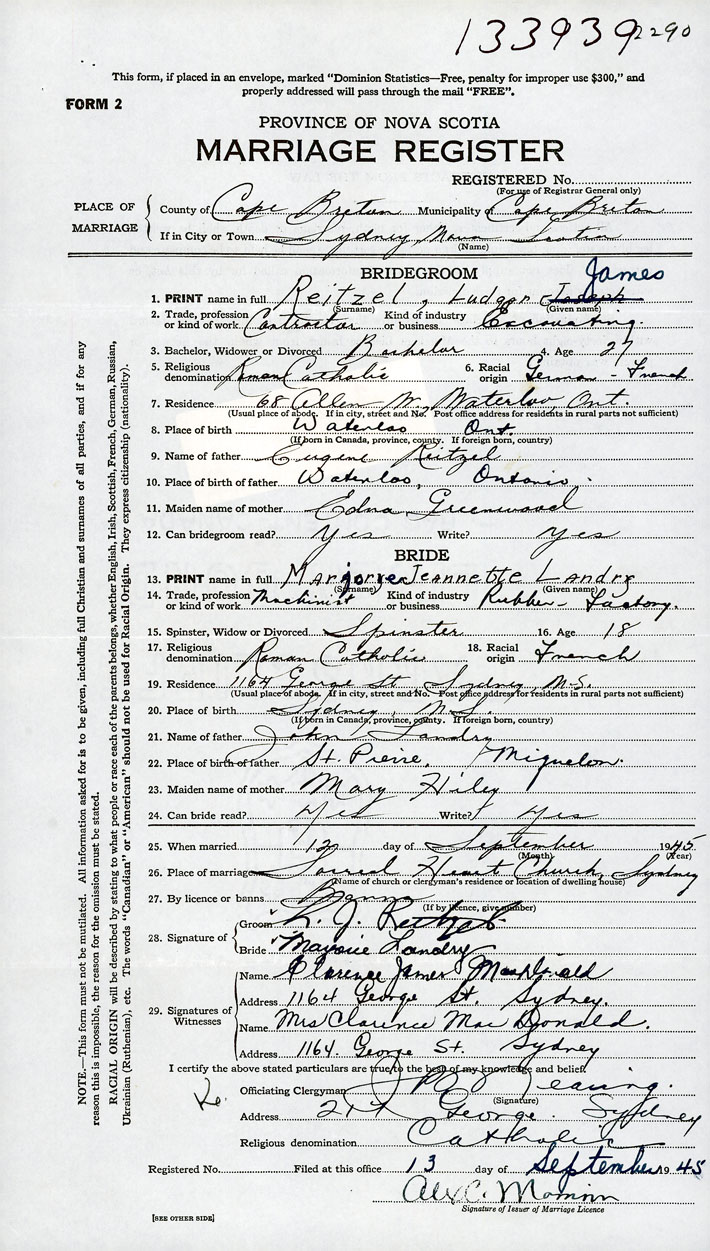 133939 2290
This form, if placed in an envelope, marked "Dominion Statistics—Free, penalty for improper use $300," and
properly addressed will pass through the mail "FREE".
FORM 2
PROVINCE OF NOVA SCOTIA
MARRIAGE REGISTER
REGISTERED No.
(For use of Registrar General only)
PLACE OF MARRIAGE
County of Cape Breton Municipality of Cape Breton
If in City or Town Sydney Nova Scotia
(Name)
BRIDEGROOM
James
1. PRINT name in full Reitzel, Ludger Joseph
(Surname) (Given name)
2. Trade, profession or kind of work Contractor Kind of industry or business Excavating.
3. Bachelor, Widower or Divorced Bachelor 4. Age 27
5. Religious denomination Roman Catholic 6. Racial origin German - French
7. Residence 68 Allen W. Waterloo, Ont.
(Usual place of abode. If in city, street and No. Post office address for residents in rural parts not sufficient)
8. Place of birth Waterloo Ont.
(If born in Canada, province, county. If foreign born, country)
9. Name of father Eugene Reitzel
10. Place of birth of father Waterloo, Ontario.
11. Maiden name of mother Edna Greenwood
12. Can bridegroom read? Yes Write? Yes
BRIDE
13. PRINT name in full Marjorie Jeannette Landry
(Surname) (Given name)
14. Trade, profession or kind of work Machinist Kind of industry or business Rubber - Factory.
15. Spinster, Widow or Divorced Spinster 16. Age 18
17. Religious denomination Roman Catholic 18. Racial origin French
19. Residence 1164 George St. Sydney N.S.
(Usual place of abode. If in city, street and No. Post office address for residents in rural parts not sufficient)
20. Place of birth Sydney, N.S.
(If born in Canada, province, county. If foreign born, country)
21. Name of father John Landry
22. Place of birth of father St. Pierre, Miquelon.
23. Maiden name of mother Mary Hiley
24. Can bride read? Yes Write? Yes
25. When married 12 day of September 1945
(Month) (Year)
26. Place of marriage Sacred Heart Church, Sydney
(Name of church or clergyman's residence or location of dwelling house)
27. By licence or banns Banns
(If by licence, give number)
28. Signature of
Groom L. J. Reitzel
Bride Marjorie Landry
29. Signatures of Witnesses
Name Clarence James MacDonald
Address 1164 George St. Sydney.
Name Mrs Clarence MacDonald.
Address 1164. George St. Sydney
I certify the above stated particulars are true to the best of my knowledge and belief.
Officiating Clergyman
(Signature)
Address George Sydney
Religious denomination Catholic
Registered No. Filed at this office 13 day of September 1945
Signature of Issuer of Marriage Licence
[SEE OTHER SIDE]
NOTE.—This form must not be mutilated. All information asked for is to be given, including full Christian and surnames of all parties, and if for any
reason this is impossible, the reason for the omission must be stated.
RACIAL ORIGIN will be described by stating to what people or race each of the parents belongs, whether English, Irish, Scottish, French, German, Russian,
Ukrainian (Ruthenian), etc. The words "Canadian" or "American" should not be used for Racial Origin. They express citizenship (nationality).